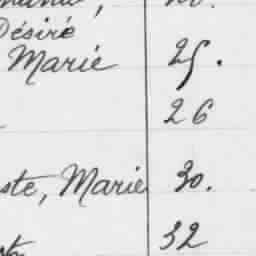 Désiré
Marie 25.
26
ste, Marie 30.
32